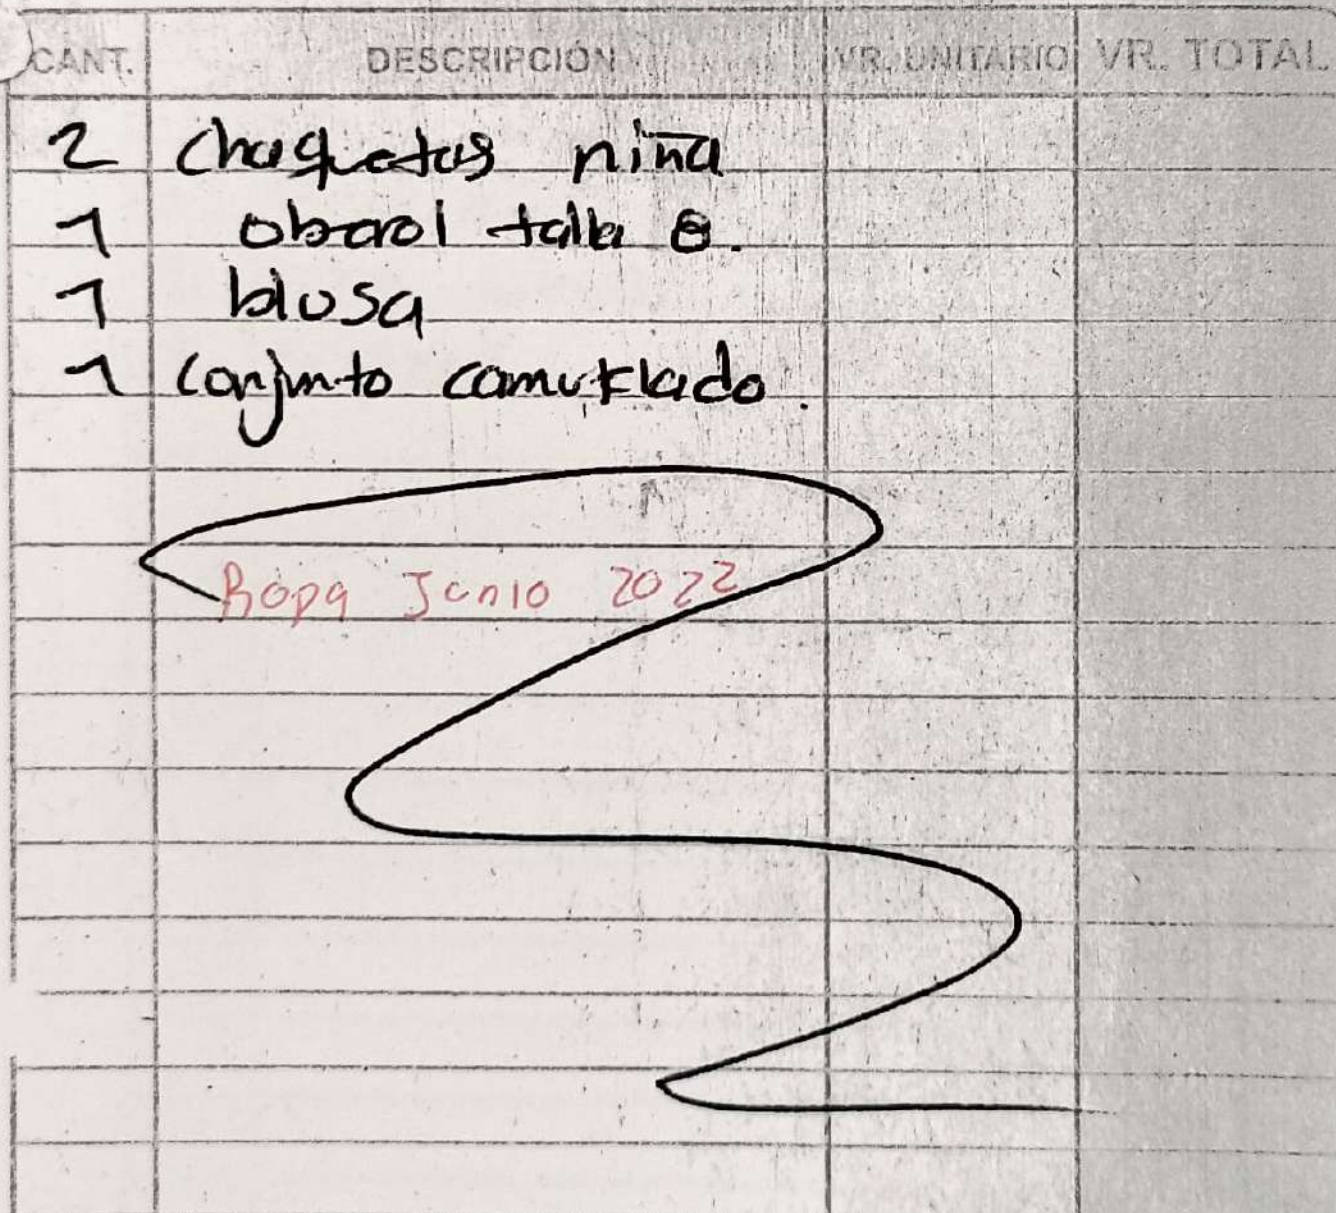 CANT. DESCRIPCIÓN VR. UNITARIO VR. TOTAL
2 chaquetas niña
1 oberol talla 8.
1 blusa
1 conjunto camuflado.
Ropa Junio 2022